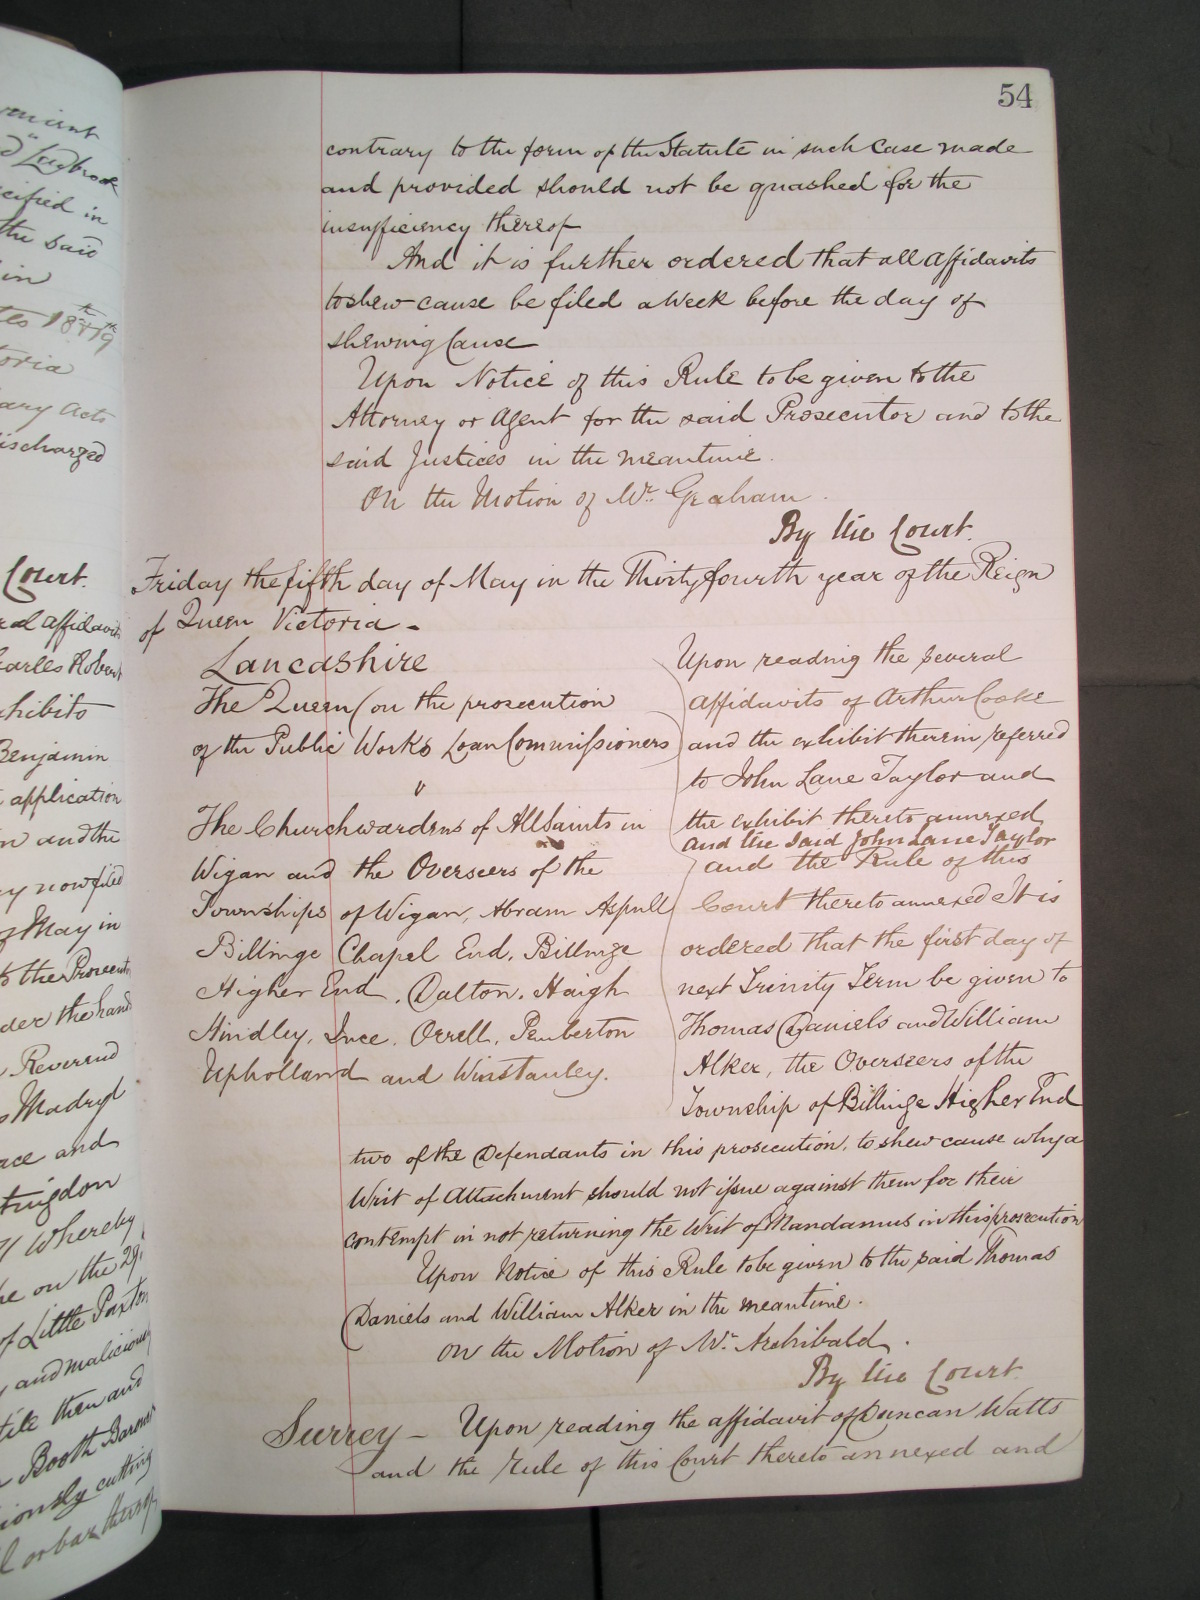 54
contrary to the form of the Statute in such Case made
and provided should not be quashed for the
insufficiency thereof
And it is further ordered that all affidavits
to shew cause be filed a Week before the day of
shewing Cause
Upon Notice of this Rule to be given to the
Attorney or Agent for the said Prosecutor and to the
said Justices in the meantime.
On the Motion of Mr. Graham.
By the Court.
Friday the fifth day of May in the Thirty fourth year of the Reign
of Queen Victoria -
Lancashire
The Queen (on the prosecution
of the Public Works Loan Commissioners)
"
The Churchwardens of All Saints in
Wigan and the Overseers of the
Townships of Wigan, Abram Aspull
Billinge Chapel End, Billinge
Higher End, Dalton, Haigh
Hindley, Ince, Orrell, Pemberton
Upholland and Winstanley.
Upon reading the several
affidavits of Arthur Cooke
and the exhibit therein referred
to John Lane Taylor and
the exhibit thereto annexed
and the said John Lane Taylor
and the Rule of this
Court thereto annexed It is
ordered that the first day of
next Trinity Term be given to
Thomas Daniels and William
Alker, the Overseers of the
Township of Billinge Higher End
two of the Defendants in this prosecution, to shew cause why a
Writ of Attachment should not issue against them for their
contempt in not returning the Writ of Mandamus in this prosecution
Upon Notice of this Rule to be given to the said Thomas
Daniels and William Alker in the meantime.
On the Motion of Mr. Archibald.
By the Court
Surrey - Upon reading the affidavit of Duncan Watts
and the Rule of this Court thereto annexed and
Court.
affidavits
Charles Robert
exhibits
Benjamin
application
and the
now filed
of May in
to the Prosecutor
under the hand
Reverend
Madryl
and
Huntingdon
Whereby
on the 29
of Little Paxton
and malicious
then and
Booth Barone
cutting
or bark thereof